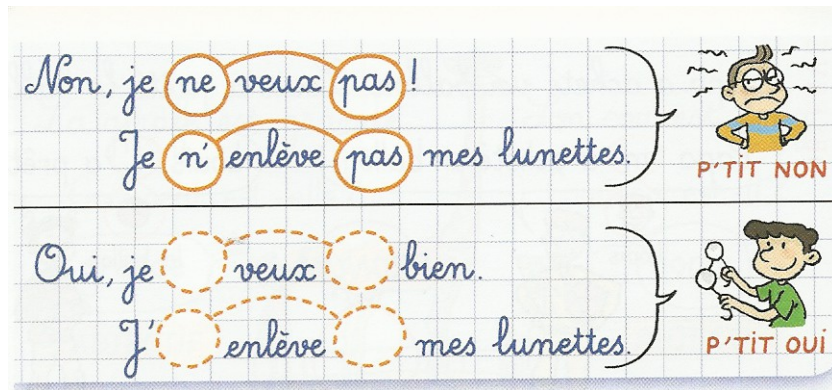 Non, je ne veux pas !
Je n' enlève pas mes lunettes.
P'TIT NON
Oui, je veux bien.
J' enlève mes lunettes.
P'TIT OUI